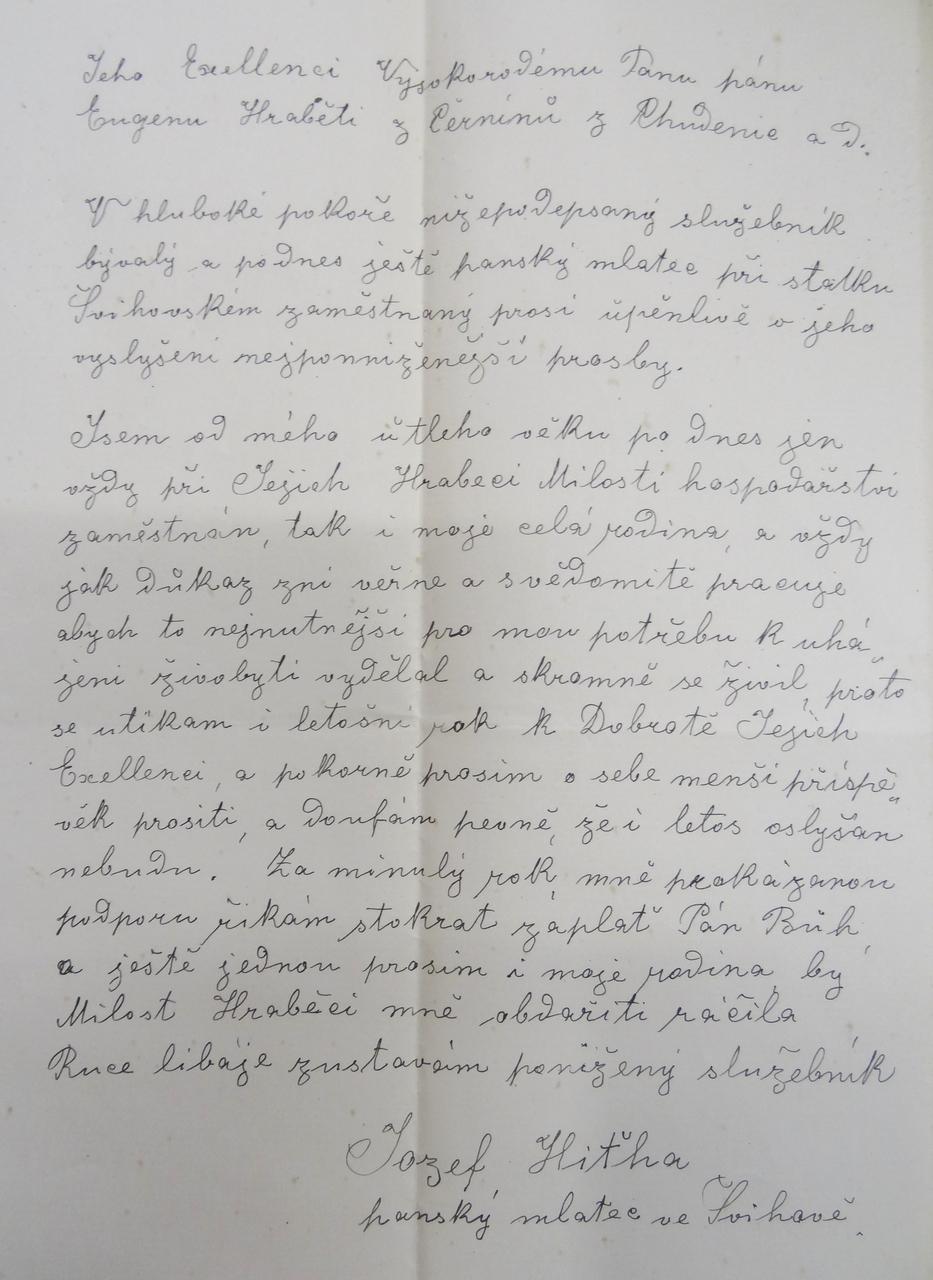 Jeho Exellenci Výsokorodému Panu pánu
Eugenu Hraběti z Černínů z Chudenic a D.
V hluboké pokoře nížepodepsaný služebník
bývalý a podnes ještě panský mlatec při statku
Švihovském zaměstnaný prosí úpěnlivě o jeho
vyslyšení nejponníženější prosby.
Jsem od mého útleho věku po dnes jen
vždy při Jejich Hraběcí Milosti hospodářství
zaměstnán, tak i moje celá rodina, a vždy
jak důkaz zní věrne a svědomitě pracuje
abych to nejnutnější pro mou potřebu k uhá„
jeni živobyti vydělal a skromně se živil, proto
se utíkam i letošní rok k Dobrotě Jejich
Exellenci, a pokorně prosim o sebe menší příspě„
věk prositi, a doufám pevně, že i letos oslyšan
nebudu. Za minulý rok, mně prokázanou
podporu řikám stokrat zaplať Pán Bůh,
a ještě jednou prosim i moje rodina, by
Milost Hraběcí mně obdařiti ráčila
Ruce libáje zustavám ponížený služebník
Jozef
panský mlatec ve Švihově.